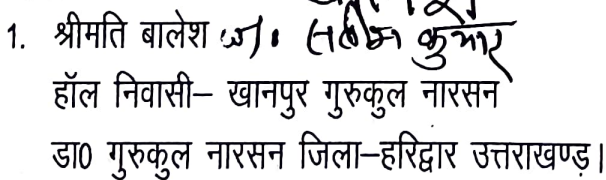 1. श्रीमति बालेश कुमार
हॉल निवासी– खानपुर गुरुकुल नारसन
डा0 गुरुकुल नारसन जिला–हरिद्वार उत्तराखण्ड।